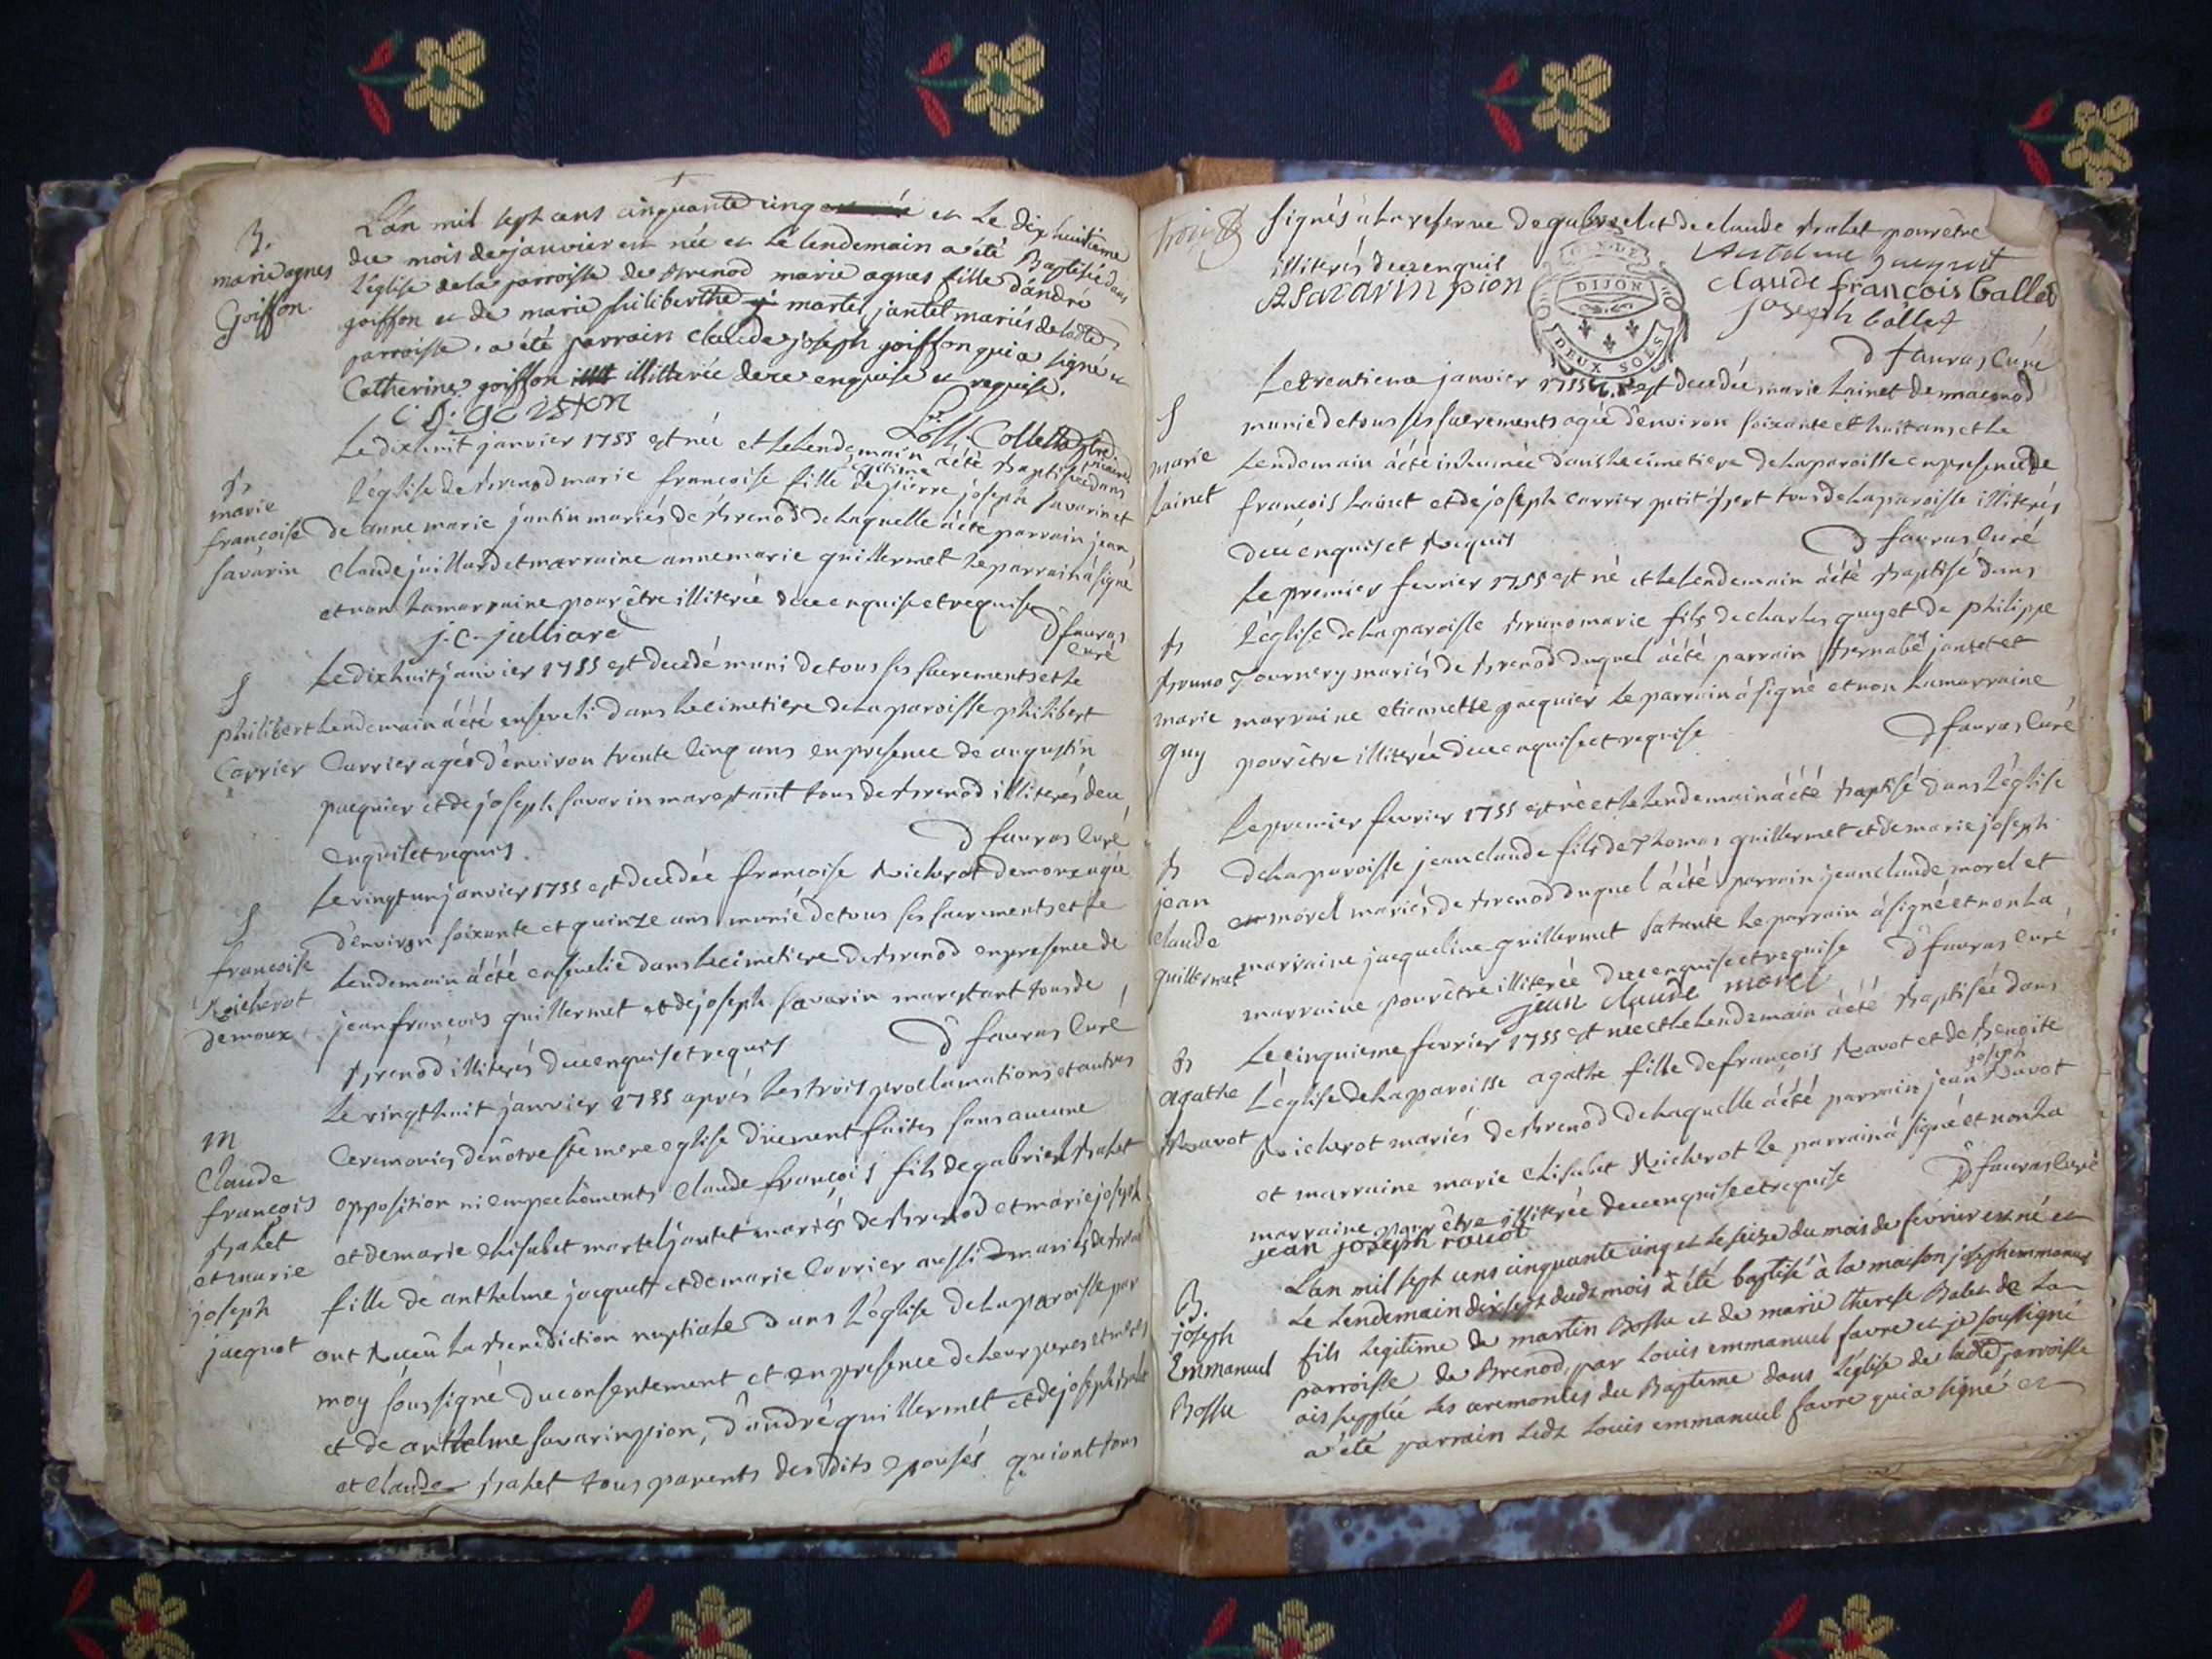 B.
marie agnes
Goiffon
L'an mil sept cens cinquante cinq et le dix huitieme
du mois de janvier est née et le lendemain a été Baptisée dans
l'église de la parroisse de Brenod marie agnes fille d'andré
goiffon et de marie philiberthe martel jantet mariés de ladte
parroisse. a été parrain claude joseph goiffon qui a signé et
Catherine goiffon illitterée de ce enquise et requise.
C j. goiston
Le dix huit janvier 1755 est née et le lendemain a été baptisée dans
B
marie
francoise
savarin
l'église de brenod marie francoise fille legitime de pierre joseph savarin et
de anne marie jantin mariés de brenod de laquelle a été parrain jean
claude juillard et marraine anne marie guillermet le parrain a signé
et non la marraine pour être illiterée de ce enquise et requise
j. c. julliard
D fauras
curé
S
philibert
Carrier
Le dix huit janvier 1755 est decedé muni de tous ses sacrements et le
lendemain a été enseveli dans le cimetiere de la paroisse philibert
Carrier agés d'environ trente cinq ans en presence de augustin
pacquier et de joseph savarin marestant tous de brenod illiterés de ce
enquis et requis.
D fauras Curé
S
francoise
Richerot
demoux
Le vingt un janvier 1755 est decedée francoise Richerot demoux agée
d'environ soixante et quinze ans munie de tous ses sacrements et le
lendemain a été ensevelie dans le cimetiere de brenod en presence de
jean francois guillermet et de joseph savarin marestant tous de
brenod illiterés de ce enquis et requis
D fauras Curé
M
Claude
françois
balet
et marie
joseph
jacquet
Le vingt huit janvier 1755 aprés les trois proclamations et autres
Ceremonies de nôtre ste mere eglise düement faites sans aucune
opposition ni empechements Claude françois fils de gabriel balet
et de marie elisabet martel jantet mariés de brenod et marie joseph
fille de anthelme jacquet et de marie Carrier aussi mariés de brenod
ont reçu la benediction nuptiale dans l'église de la paroisse par
moy soussigné du consentement et en presence de leur peres et meres
et de anthelme savarin pion, d'andré guillermet et de joseph balet
et claude balet tous parents des dits epousés qui ont tous
trois
signés a la reserve de gabriel et de claude balet pour être
illiterés de ce enquis
A Savarin pion
DIJON
DEUX SOLS
claude françois ballet
joseph ballet
D fauras Curé
S
marie
Lainet
Le trentieme janvier 1755 est decedée marie Lainet de maconod
munie de tous ses sacrements agée d'environ soixante et huit ans et le
lendemain a été inhumée dans le cimetiere de la paroisse en presence de
françois Lainet et de joseph carrier petit tous de la paroisse illiterés
de ce enquis et Requis
D fauras Curé
B
bruno
marie
guy
Le premier fevrier 1755 est né et le lendemain a été baptisé dans
l'église de la paroisse bruno marie fils de charles guy et de philippe
Tournery mariés de brenod duquel a été parrain bernabé jantet et
marraine etiennette pacquier le parrain a signé et non la marraine
pour être illiterée de ce enquise et requise
D fauras Curé
B
jean
claude
guillermet
Le premier fevrier 1755 est né et le lendemain a été baptisé dans l'église
de la paroisse jean claude fils de Thomas guillermet et de marie joseph
morel mariés de brenod duquel a été parrain jean claude morel et
marraine jacqueline guillermet sa tante le parrain a signé et non la
marraine pour être illiterée de ce enquise et requise
D fauras Curé
jean claude morel
B
agathe
Ravot
Le cinquieme fevrier 1755 est née et le lendemain a été baptisée dans
l'église de la paroisse agathe fille de françois Ravot et de benoite
Richerot mariés de brenod de laquelle a été parrain jean joseph Ravot
et marraine marie elisabet Richerot le parrain a signé et non la
marraine pour être illiterée de ce enquise et requise
D fauras Curé
jean joseph ravot
B.
joseph
Emmanuel
Bossu
L'an mil sept cens cinquante cinq et le seize du mois de fevrier est né et
le lendemain dix sept dudt mois a été baptisé à la maison joseph emmanuel
fils legitime de martin Bossu et de marie therese Balet de la
parroisse de Brenod, par Louis emmanuel favre et je soussigné
ais supplée les ceremonies du Bapteme dans l'église de ladte parroisse
a été parrain ledt Louis emmanuel favre qui a signé et